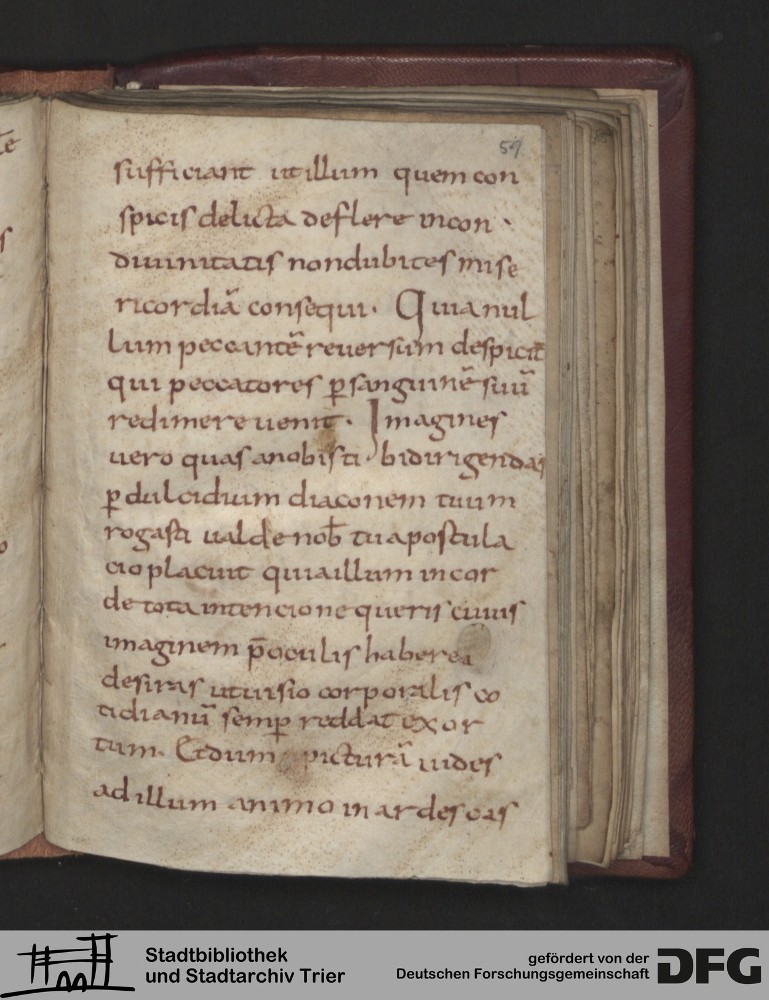 59.
sufficiant ut illum quem con
spicis delicta deflere in con ·
diuinitatis non dubites mise
ricordiā consequi · Quia nul
lum peccantē reuersum despicit
qui peccatores ꝑ sanguinē suū
redimere uenit · Imagines
uero quas a nobis ti bi dirigendas
ꝑ dulcidium diaconem tuum
rogasti ualde nob̄ tua postula
cio placuit quia illum in cor
de tota intencione queris cuius
imaginem p̄ oculis habere
desiras ut uisio corporalis co
tidianū semꝑ reddat exor
tum · Et dum picturā uides
ad illum animo in ardescas
Stadtbibliothek
und Stadtarchiv Trier
gefördert von der
Deutschen Forschungsgemeinschaft
DFG